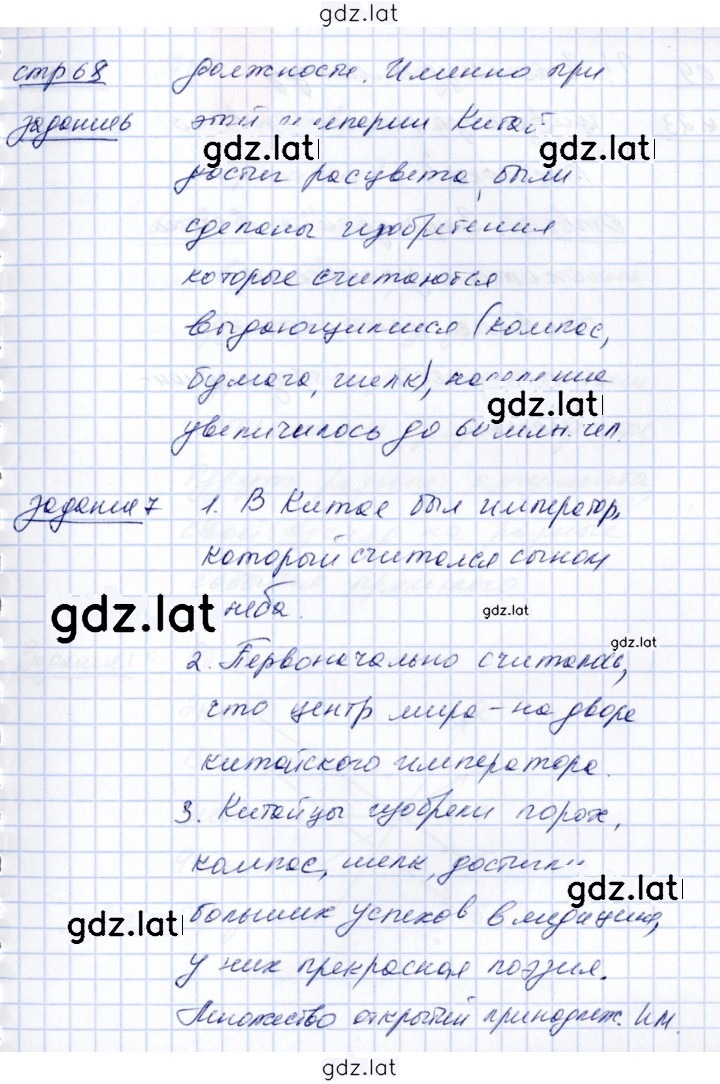 gdz.lat
стр 68 должности. Именно при
задание 6 этой империи Китай
gdz.lat
достиг расцвета, были
сделаны изобретения
которые считаются
выдающимися (компас,
бумага, шелк), население
gdz.lat
увеличилось до 60 млн. чел.
задание 7 1. В Китае был император,
который считался сыном
gdz.lat неба. gdz.lat
gdz.lat
2. Первоначально считалось,
что центр мира - на дворе
китайского императора.
3. Китайцы изобрели порох,
компас, шелк, достигли
gdz.lat
gdz.lat больших успехов в медицине,
у них прекрасная поэзия.
Множество открытий принадлеж. им.
gdz.lat